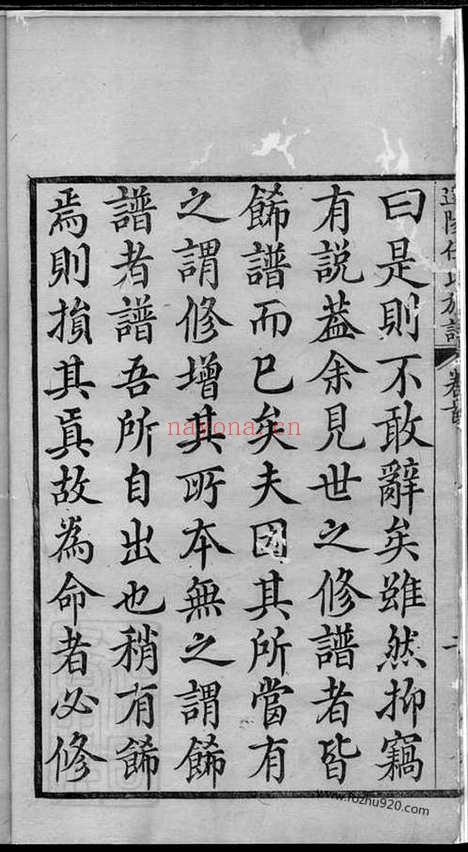 曰是則不敢辭矣雖然抑竊
有說葢余見世之修譜者皆
餙譜而已矣夫因其所當有
之謂修增其所本無之謂餙
譜者譜吾所自出也稍有餙
焉則損其眞故為命者必修
氏族譜
卷首
nayona.cn
www.fozhu920.com